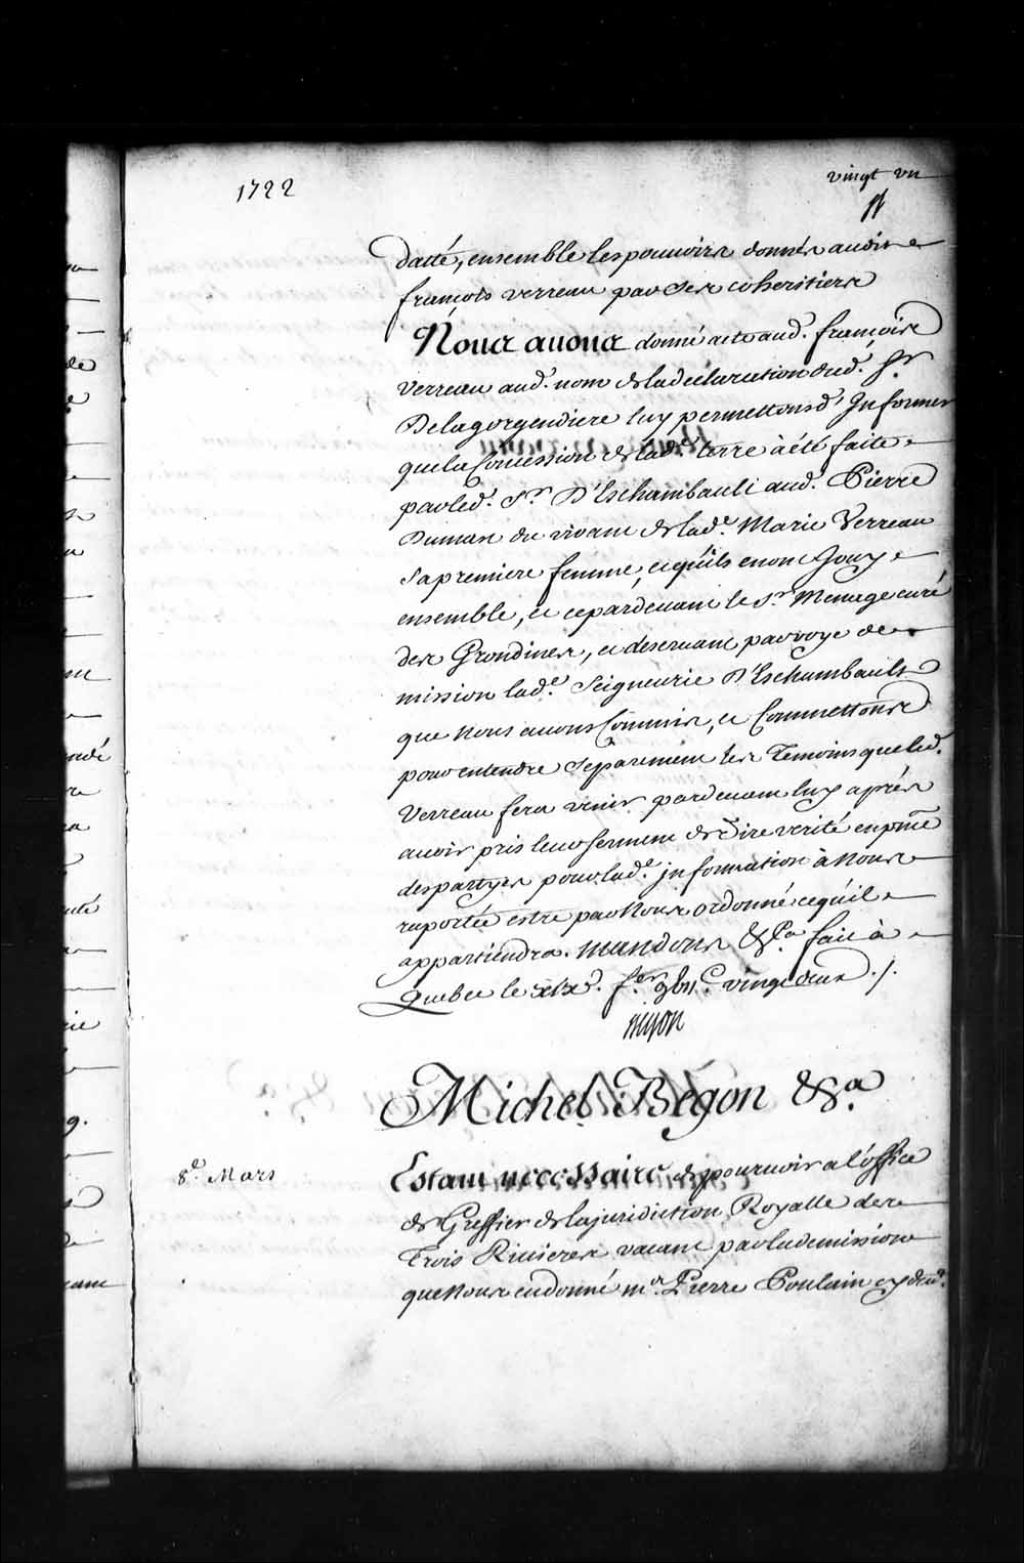 1722
vingt un
datté, ensemble les pouvoirs donnés audit
françois verreau par Ses coheritiers
Nous avons donné acte aud. françois
Verreau aud. nom de la declaration dud. Sr.
De lagorgendiere luy permettons d'Informer
que la Concession de lad.e terre à été faite
par led. Sr. D'Eschambault aud. Pierre
du vivant de lad.e Marie Verreau
Sa premiere femme, et qu'ils en ont Jouy
ensemble, et ce pardevant le Sr. Menage curé
des Grondines, et deservant par voye de
mission lad.e Seigneurie D'Eschambault
que Nous avons Commis, et Commettons
pour entendre Separement les Temoins que led.
Verreau fera venir pardevant luy aprés
avoir pris leur serment de Dire verité en pnce
des partyes pour lad.e jnformation à Nous
raportée estre par Nous ordonné ce qu'il
appartiendra. Mandons &c.a fait à
Quebec le vingt deux ./.
Michel Begon &c.a
8.e Mars
Estant necessaire de pourvoir a l'office
de Greffier de la juridiction Royalle des
Trois Rivieres vacant par la demission
que Nous en donné m.e Pierre Poulain